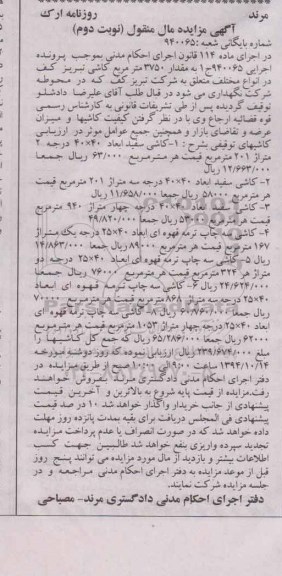 مرند روزنامه ارک
آگهی مزایده مال منقول (نوبت دوم)
شماره بایگانی شعبه: ۹۴۰۰۶۵
در اجرای ماده ۱۱۴ قانون اجرای احکام مدنی بموجب پرونده
اجرایی ۹۴۰۰۶۵ج۱ به مقدار ۳۷۵۰ متر مربع کاشی تبریز کف
در انواع مختلف متعلق به شرکت تبریز کف که در محوطه
شرکت نگهداری می شود در قبال طلب آقای علیرضا دادشلو
توقیف گردیده پس از طی تشریفات قانونی به کارشناس رسمی
قوه قضائیه ارجاع وی با در نظر گرفتن کیفیت کاشیها و میزان
عرضه و تقاضای بازار و همچنین جمیع عوامل موثر در ارزیابی
کاشیهای توقیفی بشرح : ۱-کاشی سفید ابعاد ۴۰×۴۰ درجه ۲
متراژ ۲۰۱ مترمربع قیمت هر مترمربع ۶۳/۰۰۰ ریال جمعا
۱۲/۶۶۳/۰۰۰ ریال
۲- کاشی سفید ابعاد ۴۰×۴۰ درجه سه متراژ ۲۰۱ مترمربع قیمت
هر مترمربع ۵۸۰۰۰ ریال جمعا ۱۱/۶۵۸/۰۰۰ ریال
۳- کاشی سفید ابعاد ۴۰×۴۰ درجه چهار متراژ ۹۴۰ مترمربع
قیمت هر مترمربع ۵۳۰۰۰ ریال جمعا ۴۹/۸۲۰/۰۰۰
۴- کاشی سه چاپ ترمه قهوه ای ابعاد ۲۵×۴۰ درجه یک متراژ
۱۶۷ مترمربع قیمت هر مترمربع ۸۹۰۰۰ ریال جمعا ۱۴/۸۶۳/۰۰۰
ریال ۵-کاشی سه چاپ ترمه قهوه ای ابعاد ۲۵×۴۰ درجه دو
متراژ هر ۳۲۴ مترمربع قیمت هر مترمربع ۷۶۰۰۰ ریال جمعا
۲۴/۶۲۴/۰۰۰ ریال ۶-کاشی سه چاپ ترمه قهوه ای ابعاد
۲۵×۴۰ درجه سه متراژ ۸۶۸ مترمربع قیمت هر مترمربع ۷۰۰۰۰
ریال جمعا ۶۰/۷۶۰/۰۰۰ ریال کاشی سه چاپ ترمه قهوه ای
ابعاد ۲۵×۴۰ درجه چهار متراژ ۱۰۵۳ مترمربع قیمت هر مترمربع
۶۲۰۰۰ ریال جمعا ۶۵/۲۸۶/۰۰۰ ریال که جمع کل کاشیها را
مبلغ ۲۳۹/۶۷۴/۰۰۰ ریال ارزیابی نموده که روز دوشنبه مورخه
۱۳۹۴/۱۰/۱۴ ساعت ۹:۰۰ الی صبح از طریق مزایده در
دفتر اجرای احکام مدنی دادگستری مرند بفروش خواهند
رفت.مزایده از قیمت پایه شروع به بالاترین و آخرین قیمت
پیشنهادی از جانب خریدار واگذار خواهد شد ۱۰ در صد قیمت
پیشنهادی فی المجلس دریافت برای بقیه بمدت پانزده روز مهلت
داده خواهد شد که در صورت انصراف یا عدم پرداخت مزایده
تجدید سپرده واریزی بنفع خواهد شد طالبین جهت کسب
اطلاعات بیشتر و بازدید از مال مورد مزایده می توانند پنج روز
قبل از موعد مزایده به دفتر اجرای احکام مدنی مراجعه و در
جلسه مزایده شرکت نمایند.
دفتر اجرای احکام مدنی دادگستری مرند- مصباحی